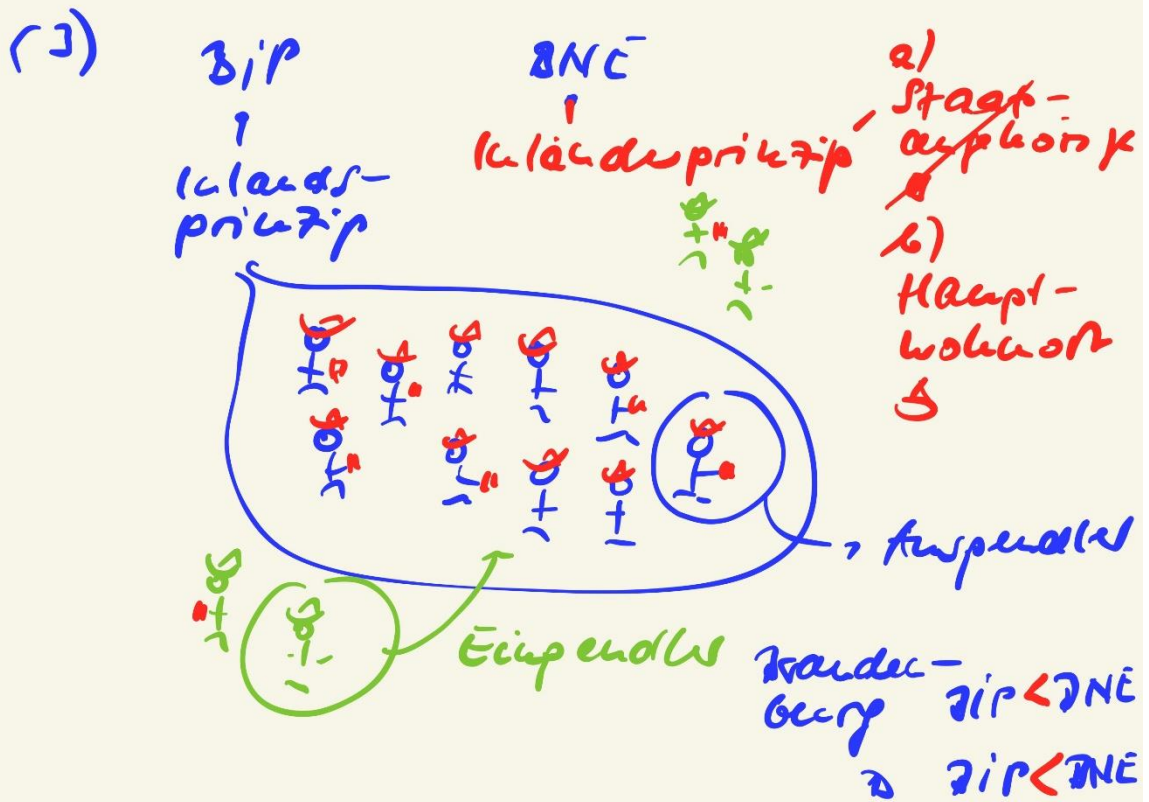 (3)
BiP
BNE
Inlands-
prinzip
Inländerprinzip
a)
Staats-
b)
Haupt-
wohnort
Auspendler
Einpendler
Branden-
burg BiP < BNE
D BiP < BNE